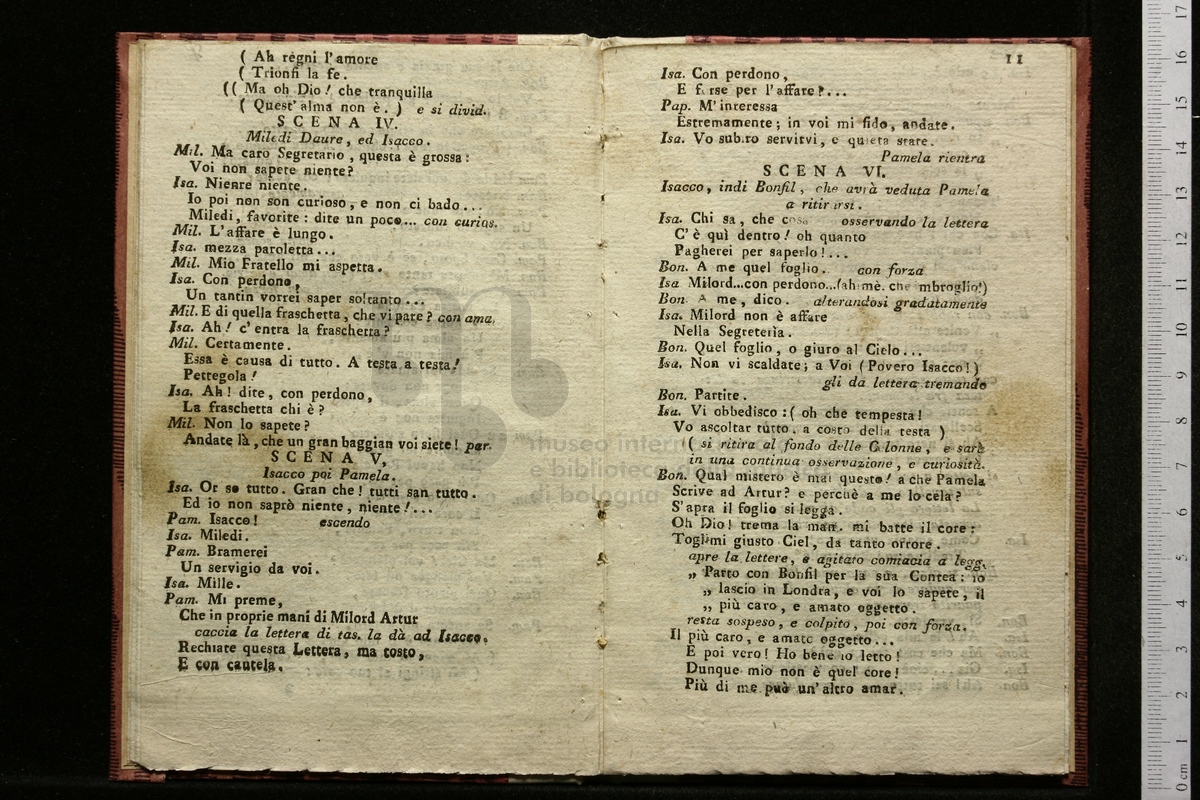 ( Ah regni l'amore
( Trionfi la fe.
(( Ma oh Dio! che tranquilla
( Quest' alma non è. ) e si divid.
SCENA IV.
Miledi Daure, ed Isacco.
Mil. Ma caro Segretario, questa è grossa:
Voi non sapete niente?
Isa. Niente niente.
Io poi non son curioso, e non ci bado...
Miledi, favorite: dite un poco... con curios.
Mil. L'affare è lungo.
Isa. mezza paroletta...
Mil. Mio Fratello mi aspetta.
Isa. Con perdono,
Un tantin vorrei saper soltanto...
Mil. E di quella fraschetta, che vi pare? con ama.
Isa. Ah! c'entra la fraschetta?
Mil. Certamente.
Essa è causa di tutto. A testa a testa!
Pettegola!
Isa. Ah! dite, con perdono,
La fraschetta chi è?
Mil. Non lo sapete?
Andate là, che un gran baggian voi siete! par.
SCENA V,
Isacco poi Pamela.
Isa. Or so tutto. Gran che! tutti san tutto.
Ed io non saprò niente, niente!...
Pam. Isacco! escendo
Isa. Miledi.
Pam. Bramerei
Un servigio da voi.
Isa. Mille.
Pam. Mi preme,
Che in proprie mani di Milord Artur
caccia la lettera di tas. la dà ad Isacco.
Rechiate questa Lettera, ma tosto,
E con cautela.
11
Isa. Con perdono,
E forse per l'affare?...
Pap. M'interessa
Estremamente; in voi mi fido, andate.
Isa. Vo subito servirvi, e quieta stare.
Pamela rientra
SCENA VI.
Isacco, indi Bonfil, che avrà veduta Pamela
a ritirarsi.
Isa. Chi sa, che cosa osservando la lettera
C'è quì dentro! oh quanto
Pagherei per saperlo!...
Bon. A me quel foglio. con forza
Isa Milord...con perdono...(ahimè. che mbroglio!)
Bon. A me, dico. alterandosi gradatamente
Isa. Milord non è affare
Nella Segreteria.
Bon. Quel foglio, o giuro al Cielo...
Isa. Non vi scaldate; a Voi (Povero Isacco!)
gli da lettera tremando
Bon. Partite.
Isa. Vi obbedisco: ( oh che tempesta!
Vo ascoltar tutto, a costo della testa )
( si ritira al fondo delle Colonne, e sarà
in una continua osservazione, e curiosità.
Bon. Qual mistero è mai questo! a che Pamela
Scrive ad Artur? e perchè a me lo cela?
S'apra il foglio si legga.
Oh Dio! trema la man. mi batte il core:
Toglimi giusto Ciel, da tanto orrore.
apre la lettere, e agitato comincia a legg.
„ Parto con Bonfil per la sua Contea: io
„ lascio in Londra, e voi lo sapete, il
„ più caro, e amato oggetto.
resta sospeso, e colpito, poi con forza.
Il più caro, e amato oggetto...
E poi vero! Ho bene io letto!
Dunque mio non è quel core!
Più di me può un'altro amar.
museo inter
e biblioteca
di bologna